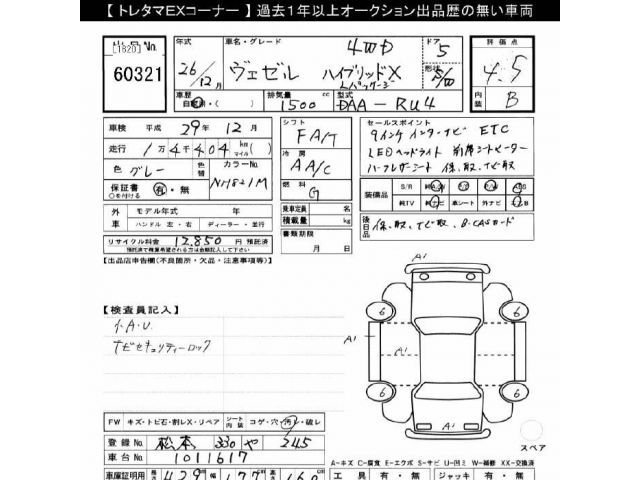 【トレタマEXコーナー】過去1年以上オークション出品歴の無い車両
出品No.
[1820]
60321
年式
26/12月
車名・グレード
ヴェゼル ハイブリッドX
Lパッケージ
4WD
ドア
5
形状
評価点
4.5
内装
B
車歴
自家用・( )
排気量
1500
cc
型式
DAA-RU4
車検 平成 29年 12月
走行 1万4千404
km
マイル
色 グレー
色替
カラーNo.
NH821M
保証書 有・無
○を付ける
シフト
FA/T
冷房
AA/C
燃料
G
乗車定員 名
積載量 kg
書類期限
月 日
セールスポイント
9インチ インターナビ ETC
LEDヘッドライト 前席シートヒーター
ハーフレザーシート 保、取、ナビ取
装備品
S/R
純AW
P/S
P/W
ABS
純TV
純ナビ
革シート
外ナビ
エアB
後日品
保、取、ナビ取、B-CASカード
外車
モデル年式 年
ハンドル 左・右 ディーラー・並行
リサイクル料金 12,850 円 預託済
預託済で精算希望される方は金額記入して下さい
【出品店申告欄(不良箇所・欠品・注意事項等)】
【検査員記入】
ナビセキュリティーロック
A1
6
6
A1
A1
A1
6
6
A1
スペア
FW
キズ・トビ石・割レX・リペア
シート
内装
コゲ・穴・汚レ・破レ
登録No. 松本 330 や 245
車台No. 1011617
A-キズ C-腐食 E-エクボ S-サビ U-凹ミ W-補修 XX-交換済
車庫証明用
長 429 幅 177 高 160
工具 有・無
ジャッキ 有・無